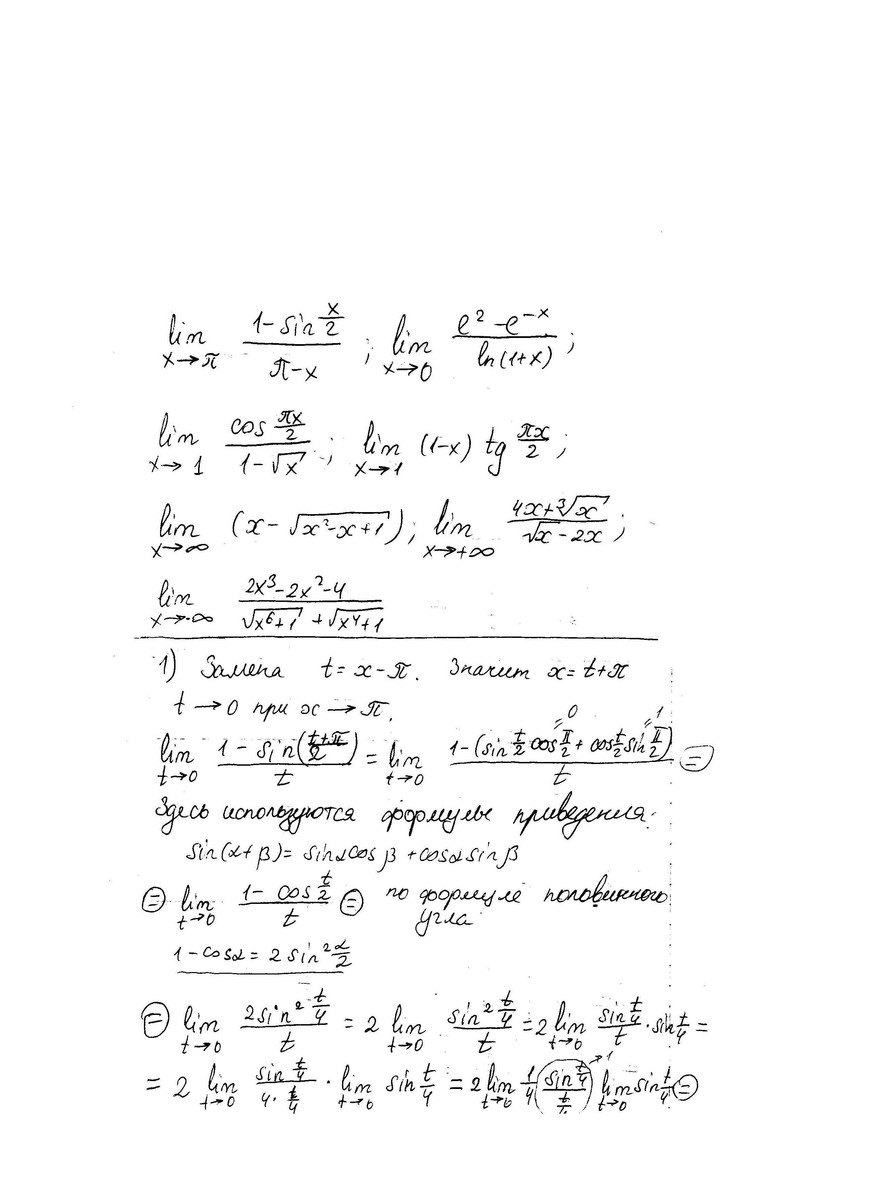 lim x→π (1 - sin x/2)/(π - x) ; lim x→0 (e² - e⁻ˣ)/(ln(1+x)) ;
lim x→1 (cos πx/2)/(1 - √x) ; lim x→1 (1-x) tg πx/2 ;
lim x→∞ (x - √(x²-x+1)) ; lim x→+∞ (4x + ³√x)/(√x - 2x) ;
lim x→-∞ (2x³ - 2x² - 4)/(√(x⁶+1) + √(x⁴+1))
1) Замена t = x - π. Значит x = t + π
t → 0 при x → π.
lim t→0 (1 - sin((t+π)/2))/t = lim t→0 (1 - (sin t/2 cos π/2 + cos t/2 sin π/2))/t = =0 =1
Здесь используются формулы приведения:
sin(α+β) = sinα cosβ + cosα sinβ
= lim t→0 (1 - cos t/2)/t = по формуле половинного
угла
1 - cosα = 2 sin² α/2
= lim t→0 (2 sin² t/4)/t = 2 lim t→0 (sin² t/4)/t = 2 lim t→0 (sin t/4)/t · sin t/4 =
= 2 lim t→0 (sin t/4)/(4 · t/4) · lim t→0 sin t/4 = 2 lim t→0 1/4 ((sin t/4)/(t/4)) → 1 lim t→0 sin t/4 =